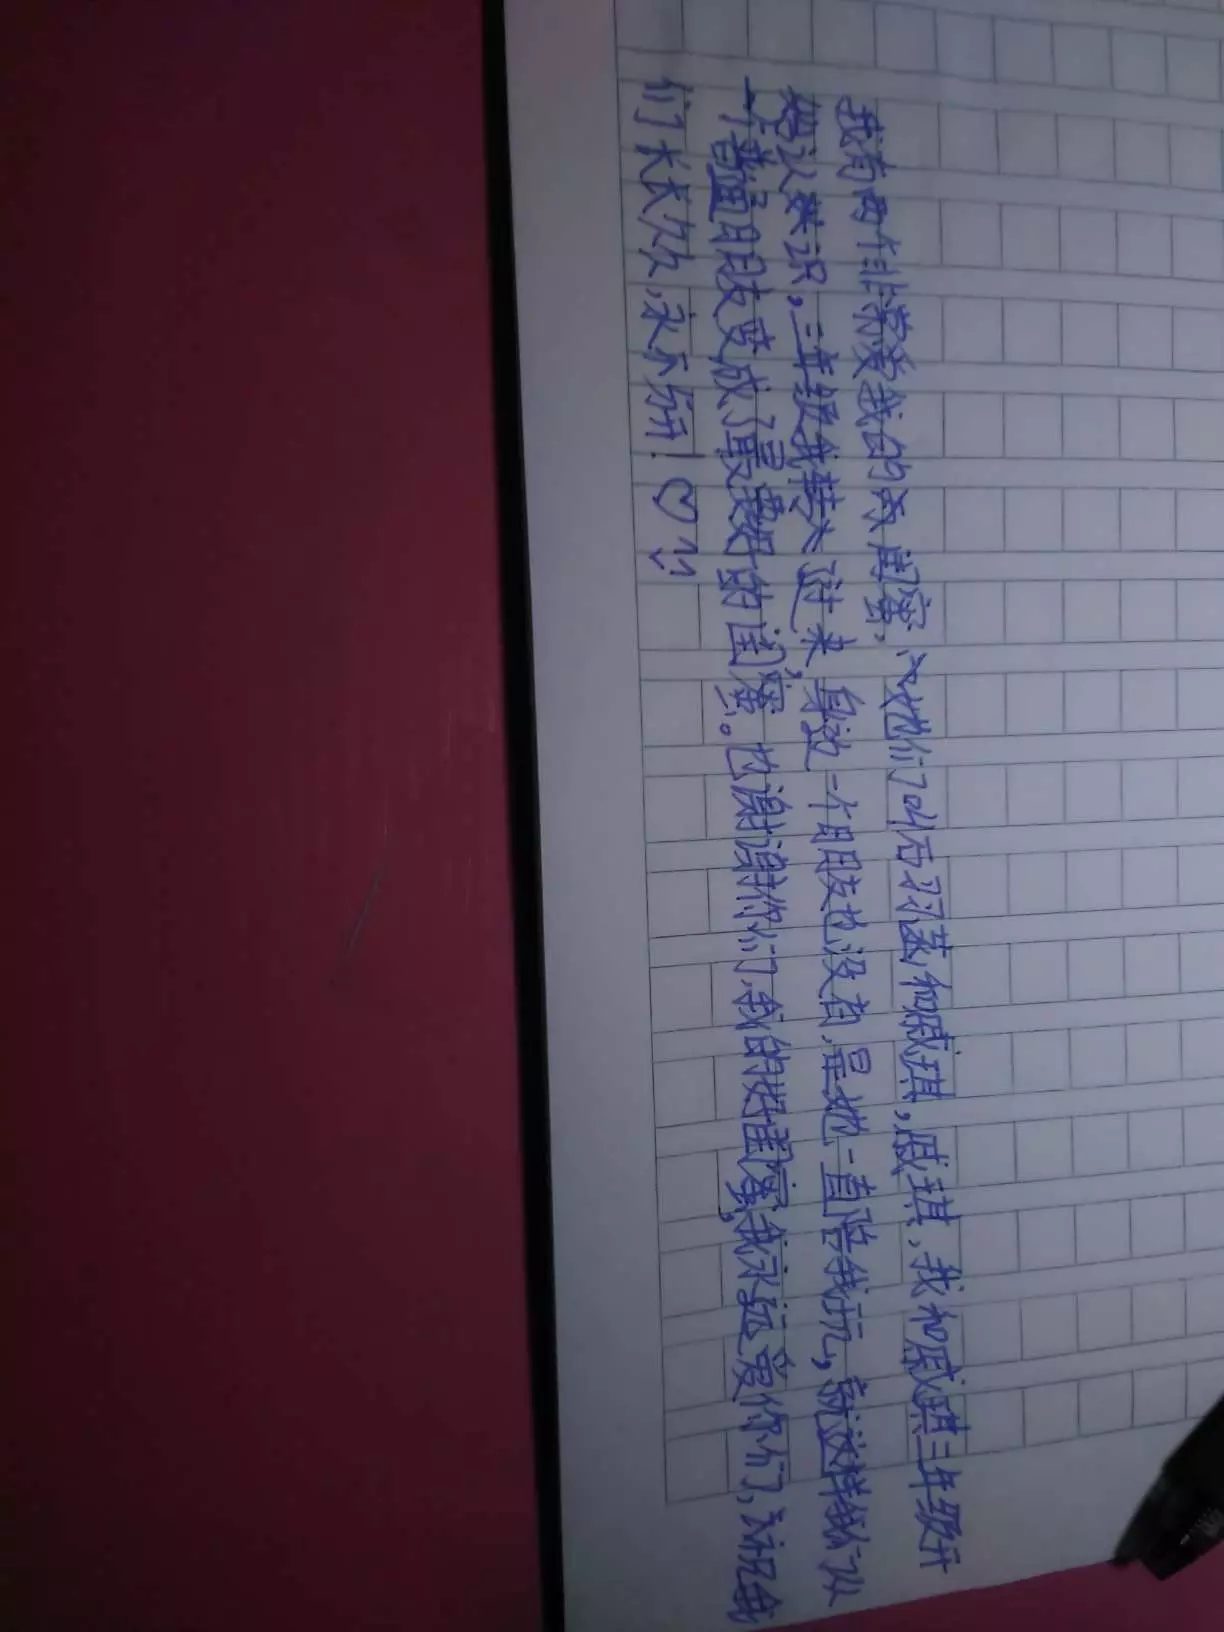 我有两个非常爱我的闺蜜,她们叫石羽菡和戚琪,戚琪,我和戚琪三年级开
始认识,三年级我转过来,身边一个朋友也没有,是她一直陪我玩,就这样我们从
一个普通朋友变成了最要好的闺蜜。也谢谢你们,我的好闺蜜,我永远爱你们,祝我
们长长久久,永不分开!♡